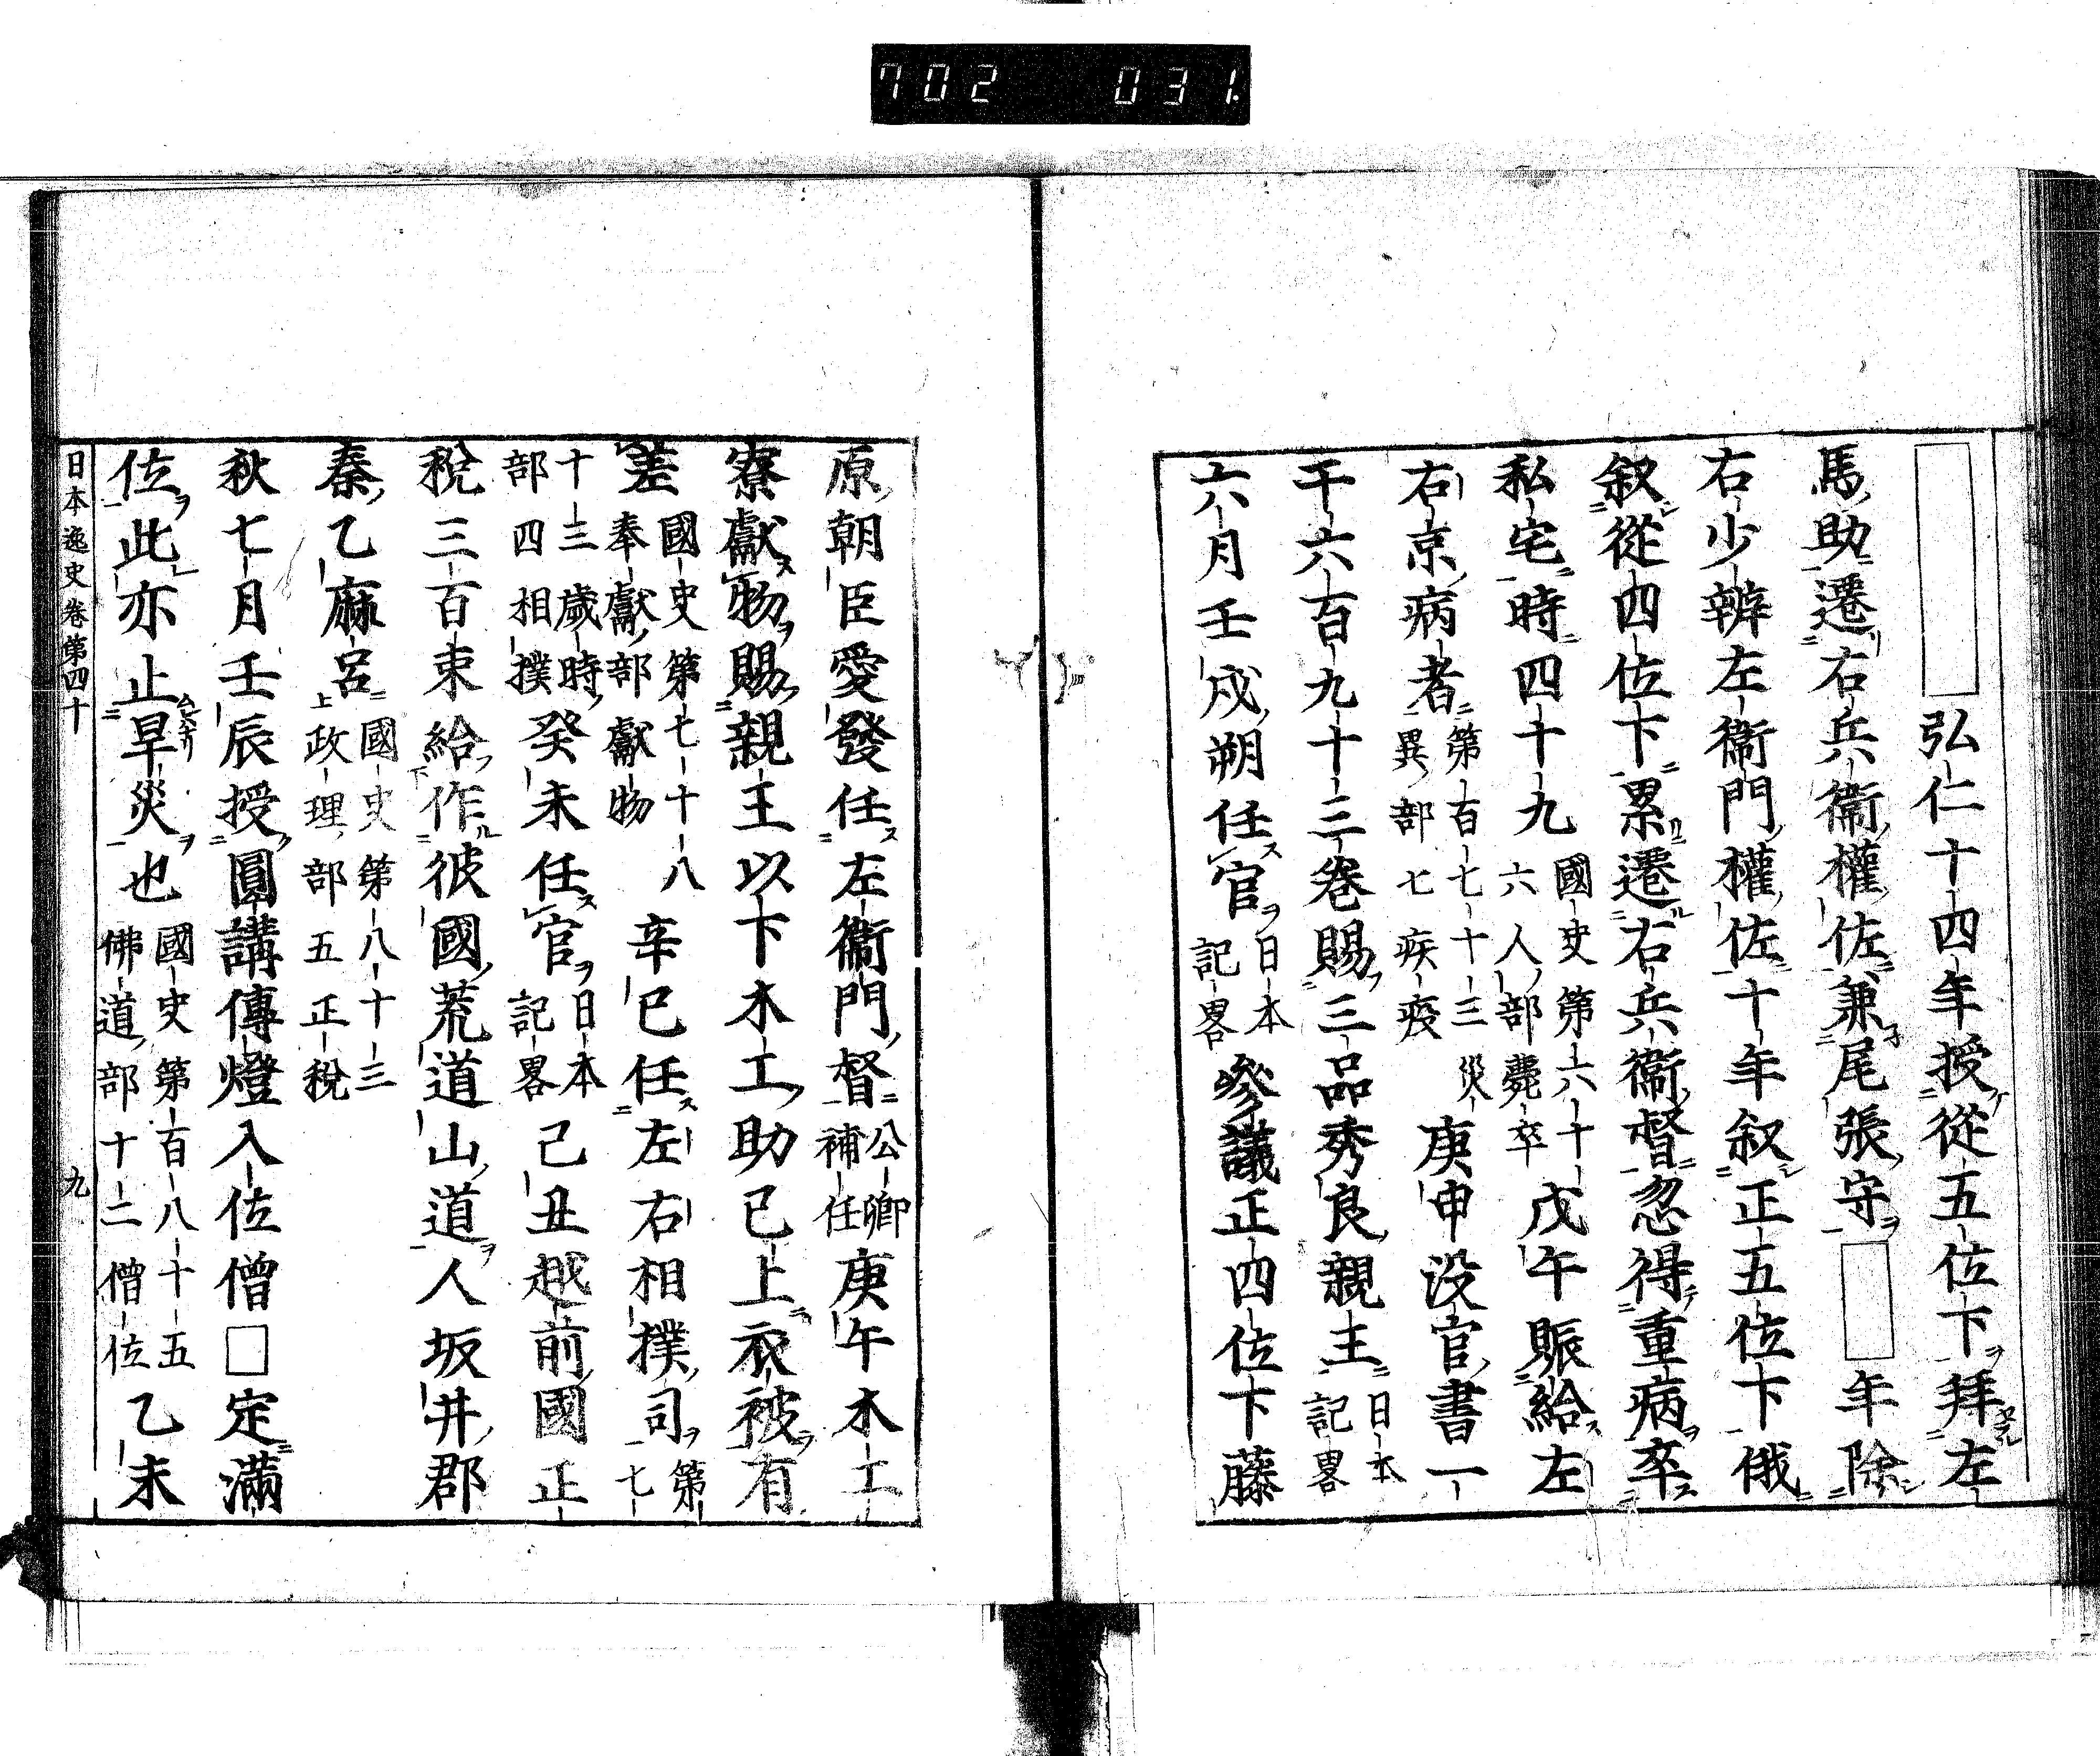 702 031.
弘仁十四年授從五位下拜左
馬助遷右兵衞權佐兼尾張守□年除
右少辨左衞門權佐十年叙正五位下俄
叙從四位下累遷右兵衞督忽得重病卒
私宅時四十九國史第六十六人部薨卒戊午賑給左
右京病者第百七十三災異部七疾疫庚申没官書一
千六百九十三卷賜三品秀良親王日本記畧
六月壬戌朔任官日本記畧參議正四位下藤
原朝臣愛發任左衞門督公卿補任庚午木工
寮獻物賜親王以下木工助已上衣被有
差國史第七十八奉獻部獻物辛巳任左右相撲司第七
十三歲時部四相撲癸未任官日本記畧己丑越前國正
稅三百束給作彼國荒道山道人坂井郡
秦乙麻呂國史第八十三政理部五正稅
秋七月壬辰授圓講傳燈入位僧□定滿
位此亦止旱災也國史第百八十五佛道部十二僧位乙未
日本逸史卷第四十 九